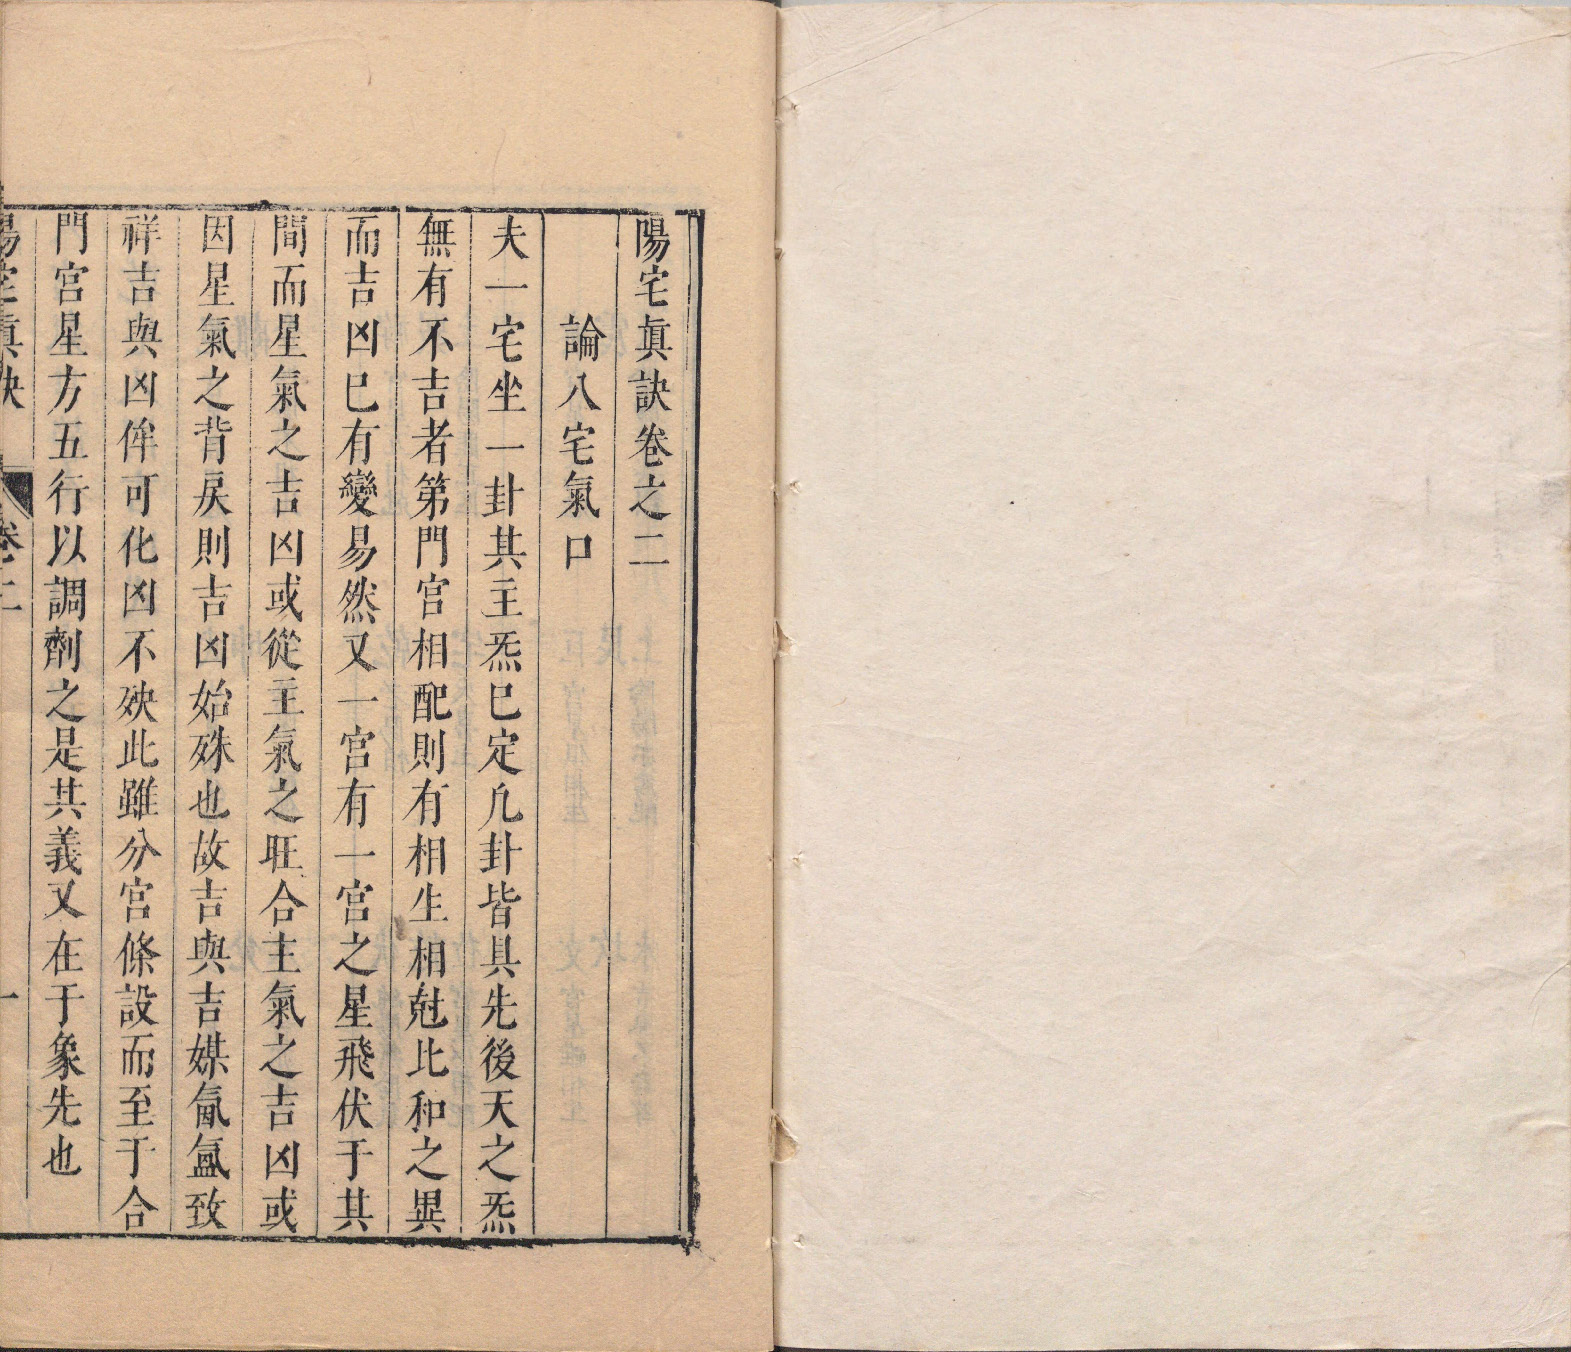 陽宅眞訣卷之二
論八宅氣口
夫一宅坐一卦其主炁巳定凢卦皆具先後天之炁
無有不吉者第門宮相配則有相生相尅比和之異
而吉凶巳有變易然又一宮有一宮之星飛伏于其
間而星氣之吉凶或從主氣之旺合主氣之吉凶或
因星氣之背戾則吉凶始殊也故吉與吉媒氤氳致
祥吉與凶侔可化凶不殃此雖分宮條設而至于合
門宮星方五行以調劑之是其義又在于象先也
陽宅眞訣 卷二 一